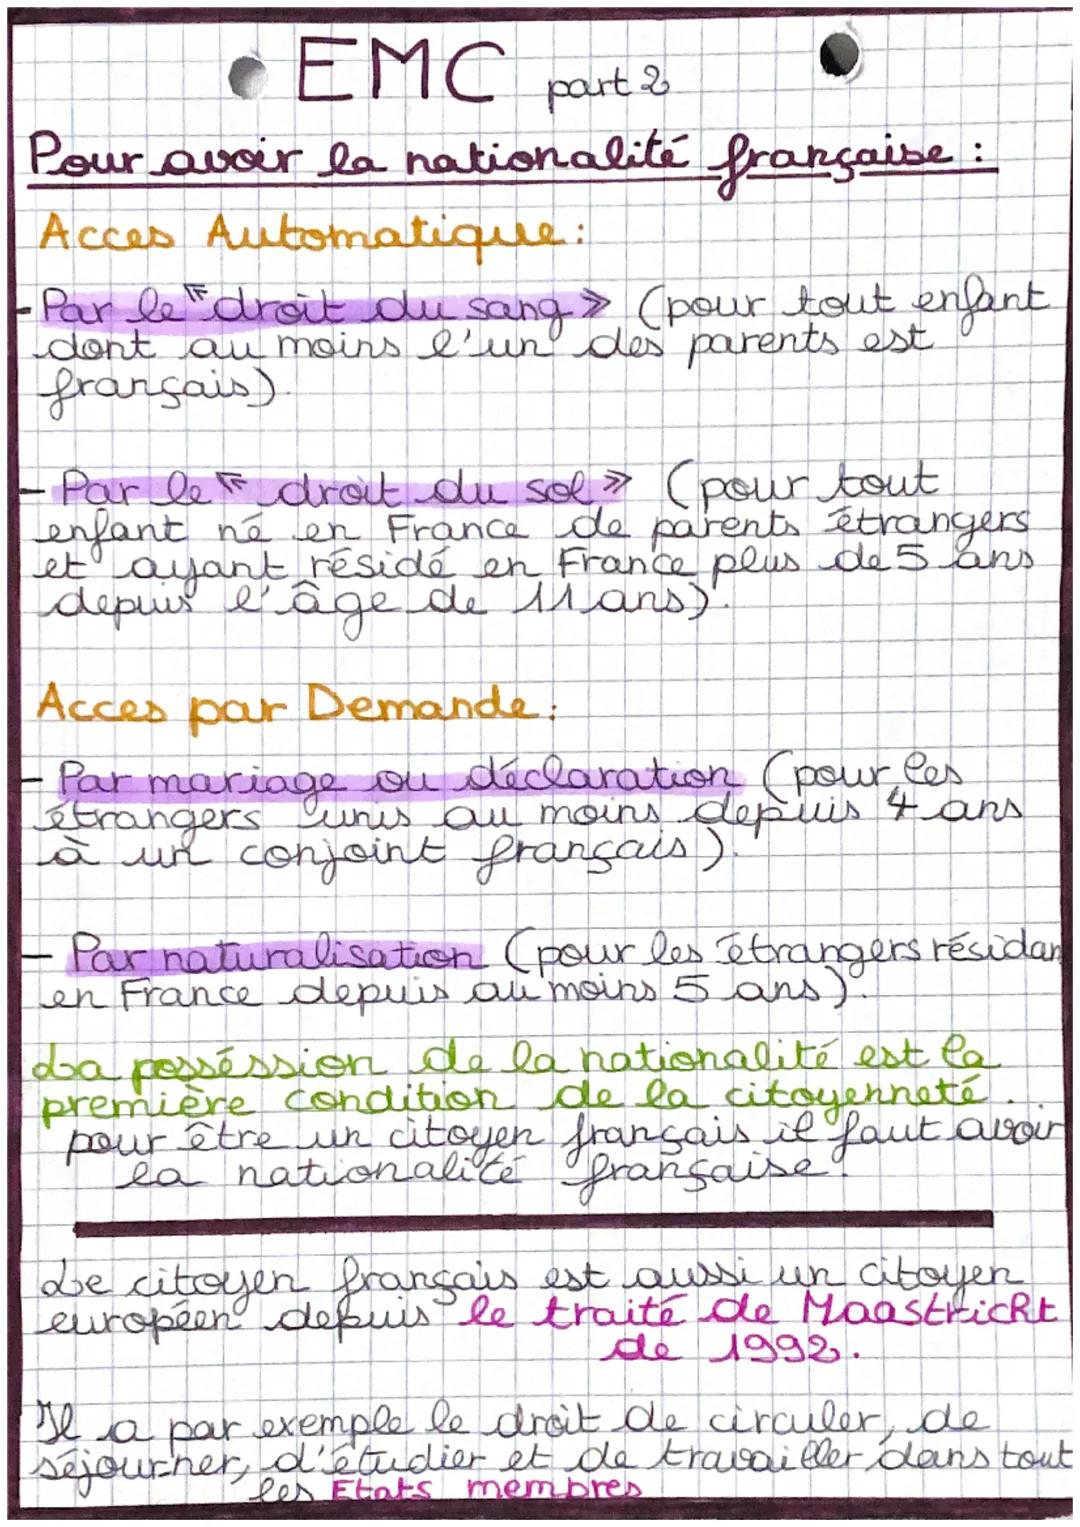 EMC part 2
Pour avoir la nationalité française :
Acces Automatique :
- Par le « droit du sang » (pour tout enfant
dont au moins l'un des parents est
français).
- Par le « droit du sol » (pour tout
enfant né en France de parents étrangers
et ayant résidé en France plus de 5 ans
depuis l'âge de 11 ans).
Acces par Demande :
- Par mariage ou déclaration (pour les
étrangers unis au moins depuis 4 ans
à un conjoint français).
- Par naturalisation (pour les étrangers résidan
en France depuis au moins 5 ans).
La posséssion de la nationalité est la
première condition de la citoyenneté.
pour être un citoyen français il faut avoir
la nationalité française.
Le citoyen français est aussi un citoyen
européen depuis le traité de Maastricht
de 1992.
Il a par exemple le droit de circuler, de
séjourner, d'étudier et de travailler dans tout
les Etats membres